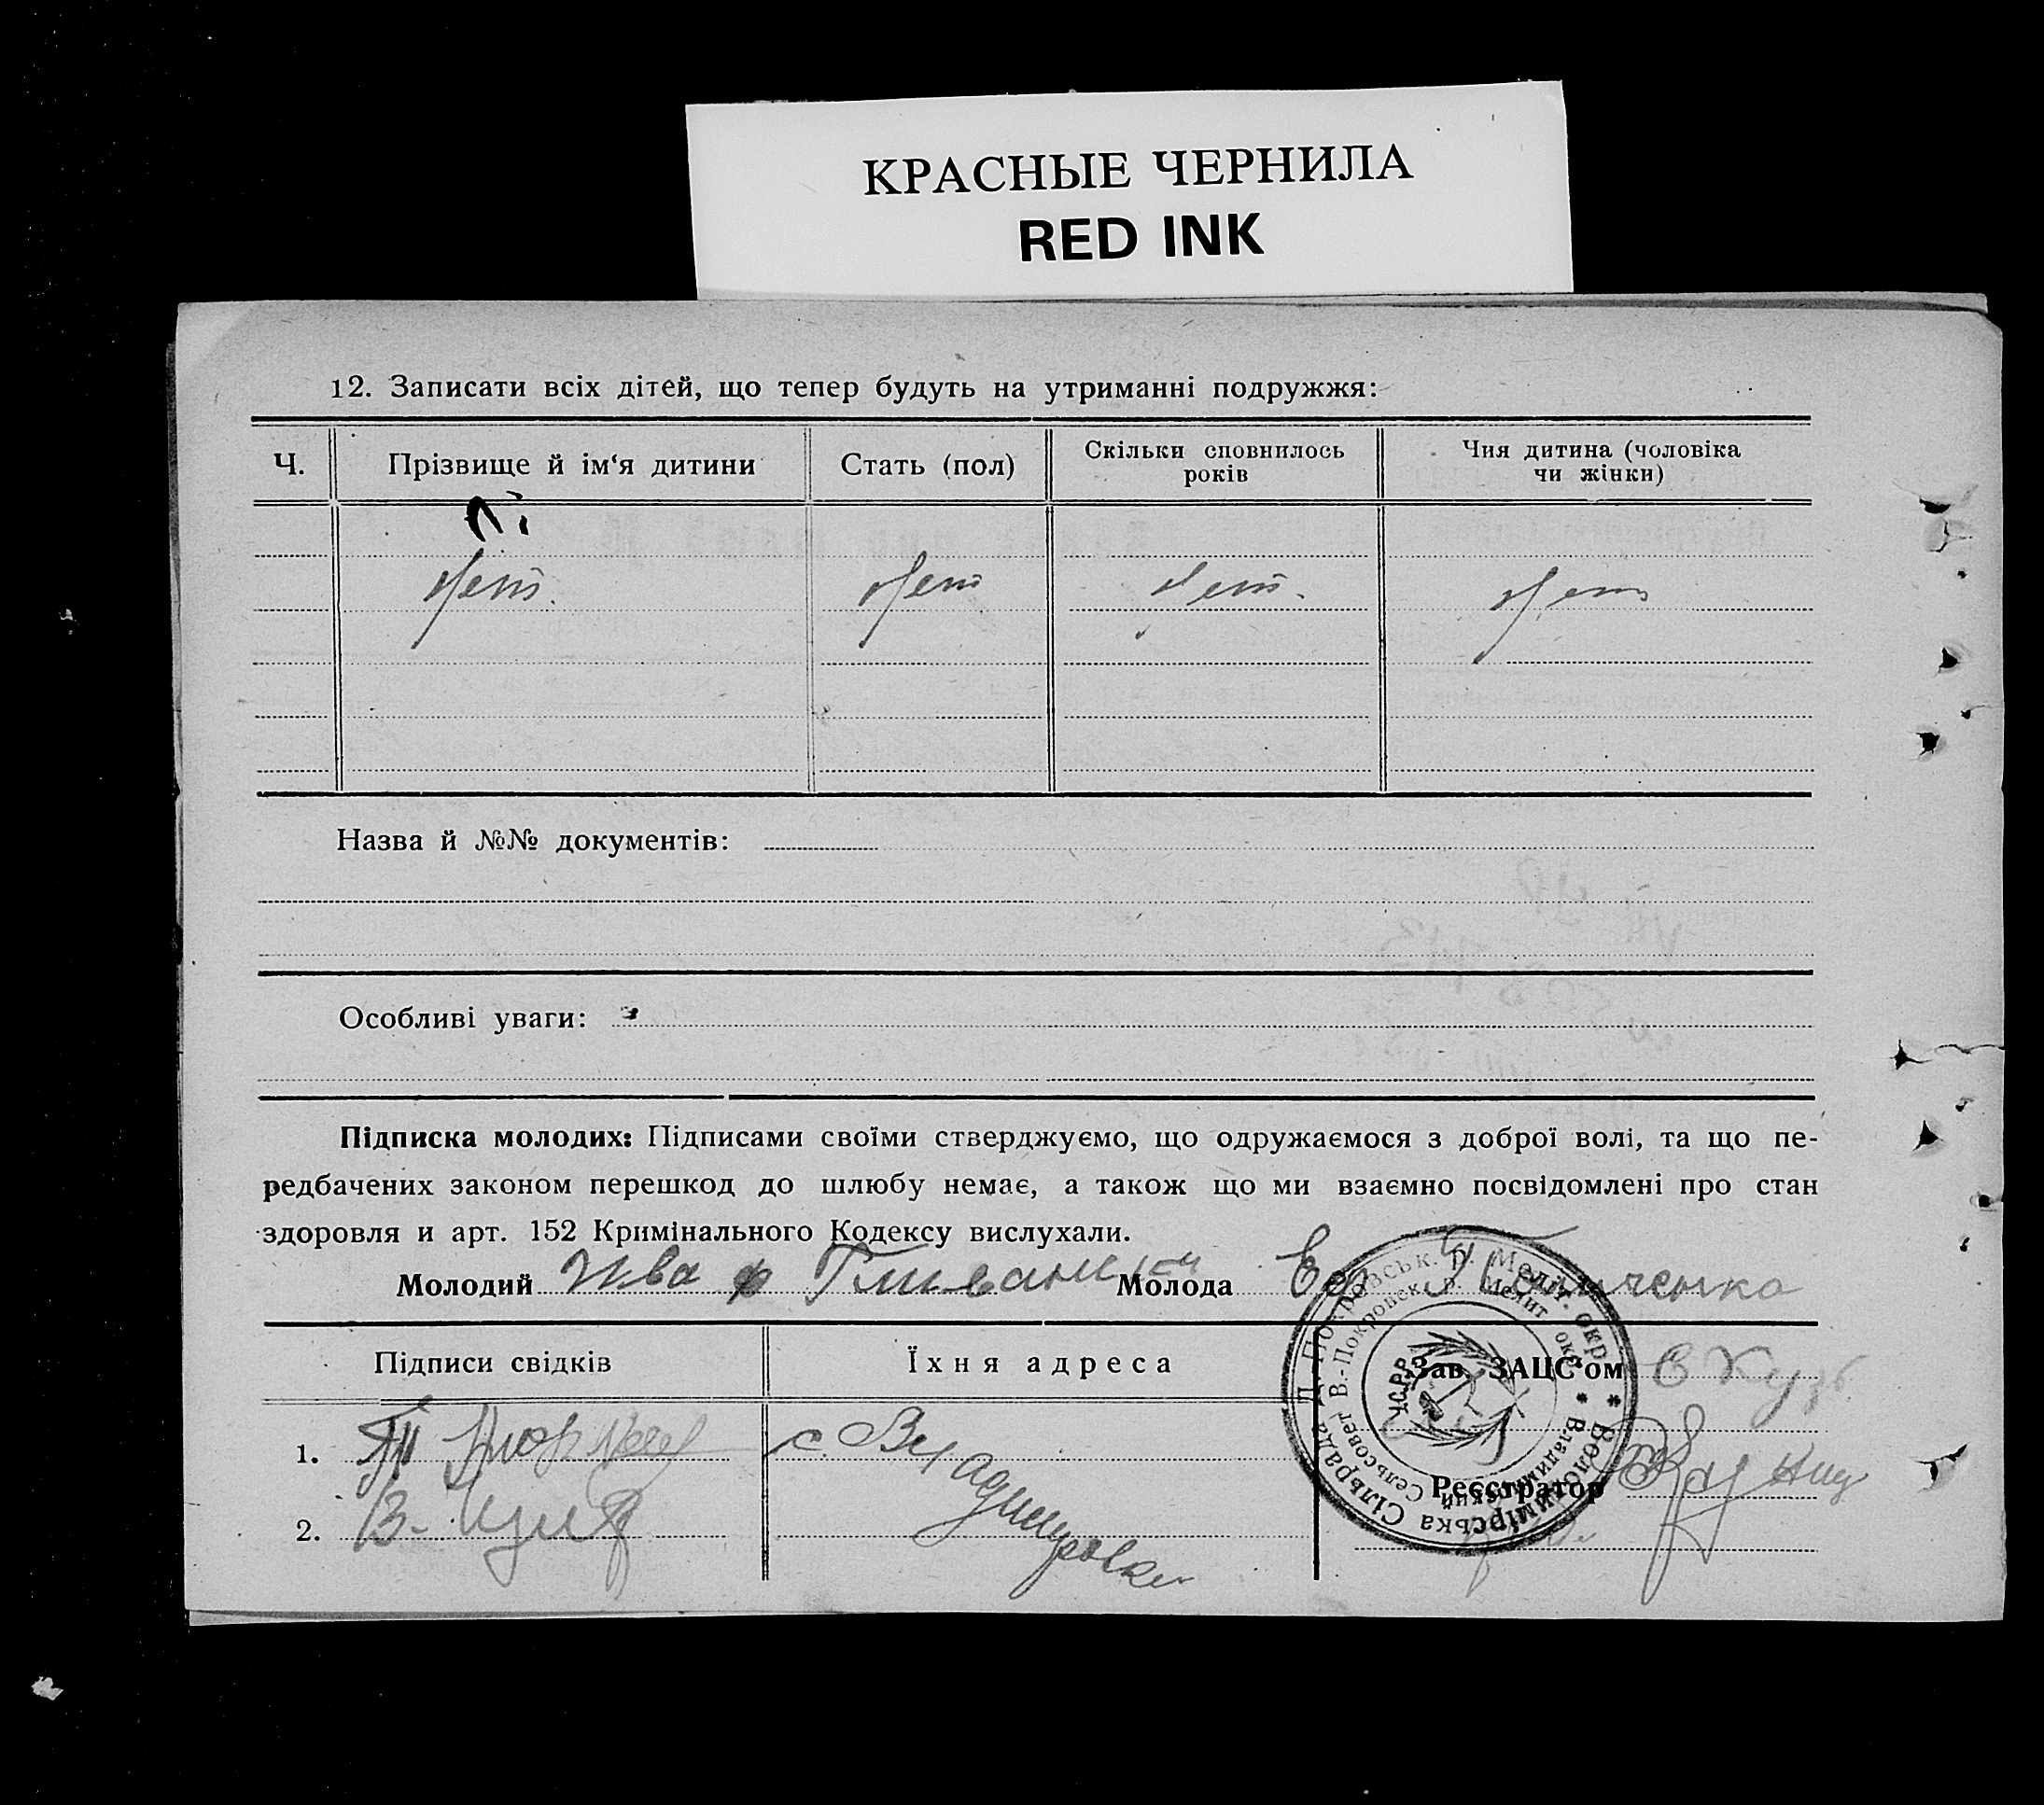 КРАСНЫЕ ЧЕРНИЛА
RED INK
12. Записати всіх дітей, що тепер будуть на утриманні подружжя:
Ч. Прізвище й ім‘я дитини Стать (пол) Скільки сповнилось років Чия дитина (чоловіка чи жінки)
нет. нет нет. нет
Назва й №№ документів:
Особливі уваги:
Підписка молодих: Підписами своїми стверджуємо, що одружаємося з доброї волі, та що пе-
редбачених законом перешкод до шлюбу немає, а також що ми взаємно посвідомлені про стан
здоровля и арт. 152 Кримінального Кодексу вислухали.
Молодий Молода
Підписи свідків Їхня адреса Зав. ЗАЦС‘ом
1. с. Владимировка
Реєстратор
2. В.
Володимірська Сільрада Д. Покровськ. р. Меліт. окр. *
Владимирский Сельсовет В.-Покровск. р. Мелит. окр. *
УСРР